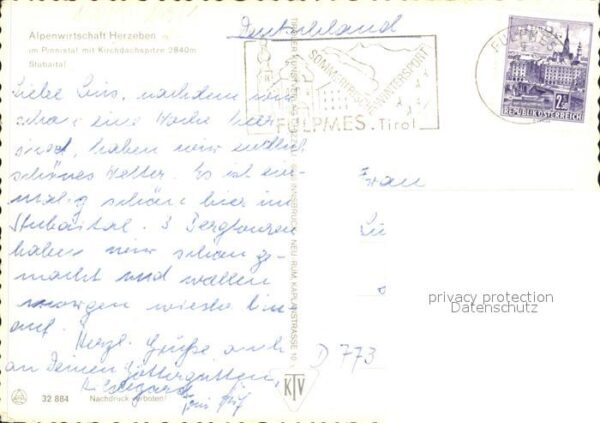 Alpenwirtschaft Herzeben
im Pinnistal mit Kirchdachspitze 2840m
Stubaital
Deutschland
SOMMERFRISCHE
WINTERSPORT
FULPMES. Tirol
FULPMES
2.-
REPUBLIK ÖSTERREICH
Liebe Luis, nachdem wir
schon eine Woche hier
sind, haben wir endlich
schönes Wetter. Es ist ein-
malig schön hier im
Stubaital. 3 Bergtouren
haben wir schon ge-
macht und wollen
morgen wieder hin-
auf.
Herzl. Grüße auch
an Deinen Göttergatten,
INNSBRUCK NEU RUM KAPLANSTRASSE 10
Frau
D 773
privacy protection
Datenschutz
KTV
32 884 Nachdruck verboten!